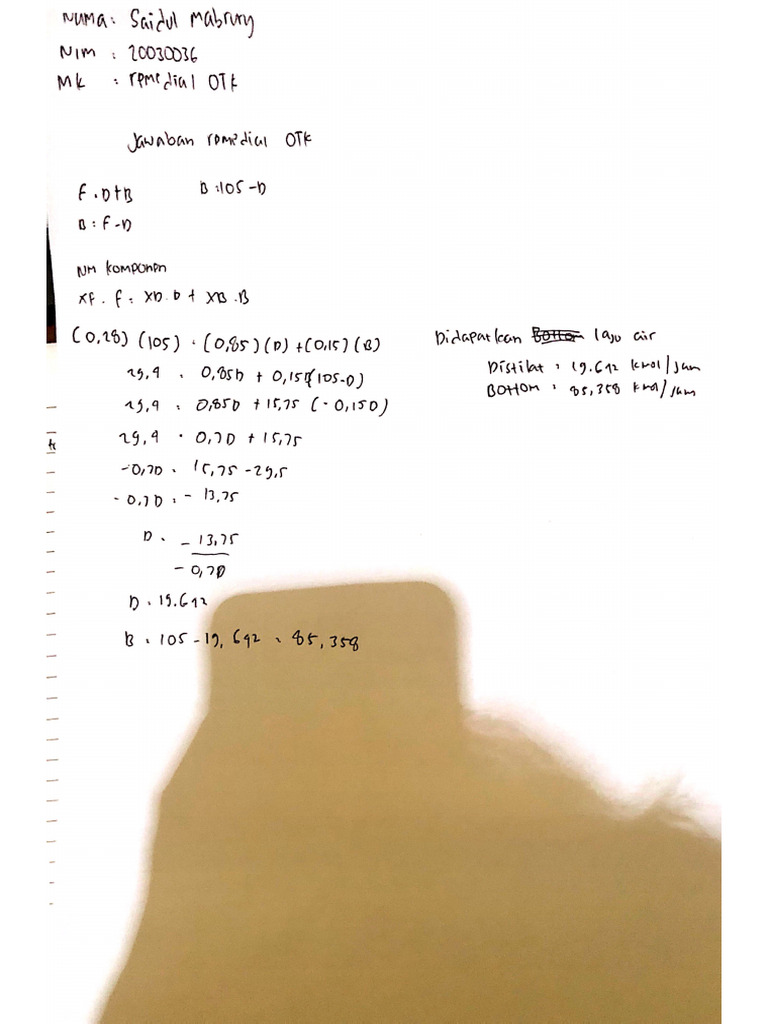 Nama: Saidul Mabrury
NIM : 20030036
MK : remedial OTK
Jawaban remedial OTK
F = D+B
B = 105-D
B = F-D
NM Komponen
XF . F = XD.D + XB.B
(0,28) (105) = (0,85)(D) + (0,15)(B)
29,4 = 0,85D + 0,15(105-D)
29,4 = 0,85D + 15,75 (-0,15D)
29,4 = 0,7D + 15,75
-0,7D = 15,75 - 29,5
-0,7D = - 13,75
D = - 13,75
- 0,7D
D = 19.642
B = 105 - 19,642 = 85,358
Didapatkan Bottom laju air
Distilat = 19.642 kmol/jam
Bottom = 85,358 kmol/jam